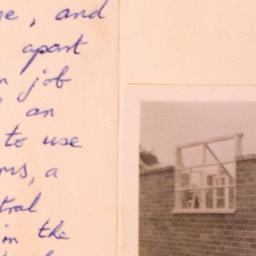 me, and
apart
job
an
to use
ms, a
tral
in the